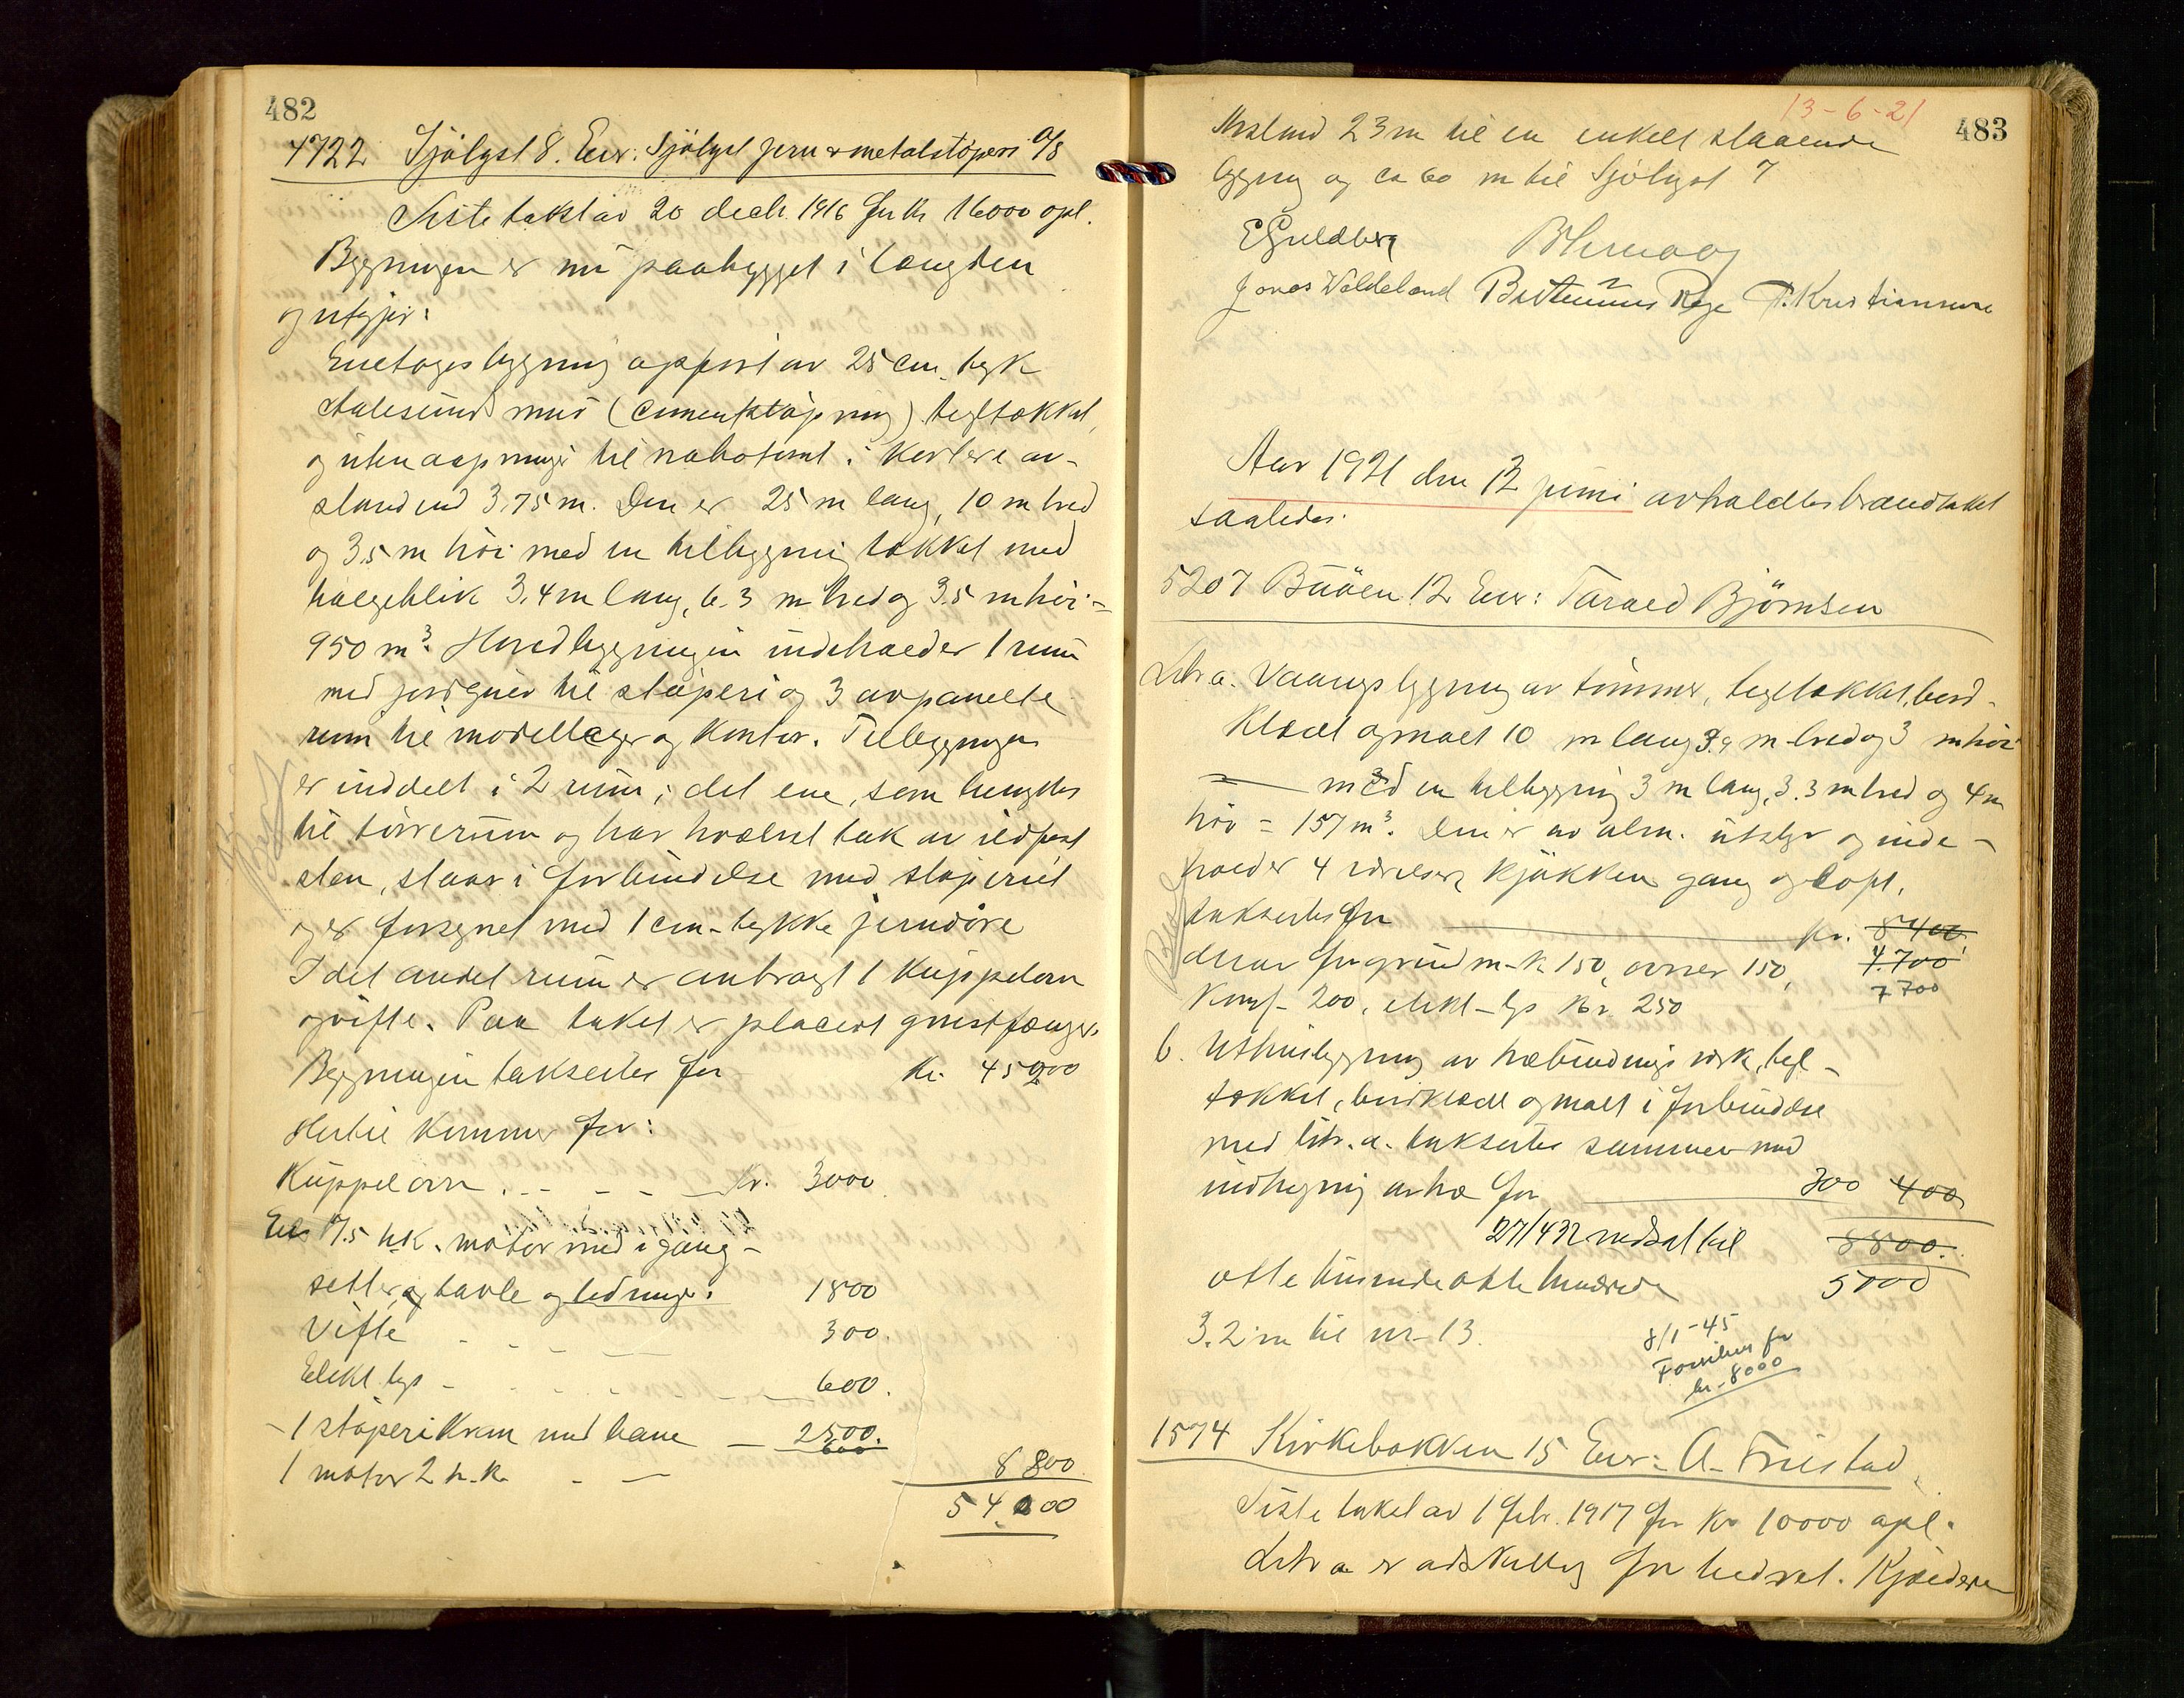 482
4722 Sjölyst 8. Eier: Sjölyst jern & metalstöperi A/S
Siste takst av 20 decbr. 1916 for kr 16000 opl.
Bygningen er nu paabygget i længden
og utgjör:
Enetages bygning opfört av 25 cm. tyk
Aalesund mur (cementstöpning) tegltækket,
og uten aapninger til nabotomt i kortere av-
stand end 3.75 m. Den er 25 m lang, 10 m bred
og 3.5 m höi med en tilbygning tækket med
bølgeblik 3.4 m lang, 6.3 m bred og 3.5 m höi =
950 m³. Hovedbygningen indeholder 1 rum
med jordgulv til støperi og 3 avpanelte
rum til modellager og kontor. Tilbygningen
er inddelt i 2 rum; det ene, som benyttes
til törrerum og har hvælvet tak av ildfast
sten, staar i forbindelse med støperiet
og er forsynet med 1 cm. tykke jerndöre
I det andet rum er anbragt 1 Kuppelovn
og vifte. Paa taket er placert gnistfanger.
Bygningen takseres for Kr. 45000
Hertil kommer for:
Kuppelovn . - - - Kr. 3000
En 7.5 hk. motor med igang-
setter, tavle og ledninger: 1800
Vifte - - - 300.
Elekt. lys - - - 600.
1 støperikran med bane - 2500.
1 motor 2 h.k. - - 600
8 800
54 000
13-6-21
483
Avstand 23 m til en enkelt staaende
bygning og ca 60 m til Sjölyst 7
E Guldberg
Jonas Waldeland
Rege T. Kristiansen
Aar 1921 den 13 juni avholdtes brandtakst
saaledes:
5207 Buöen 12 Eier: Tarald Björnsen
Litr a. Vaaningsbygning av tömmer, tegltækket, bord-
klædt og malt 10 m lang 3.9 m bred og 3 m höi
med en tilbygning 3 m lang, 3.3 m bred og 4 m
höi = 157 m³. Den er av alm. utstyr og inde-
holder 4 værelser, kjökken gang og loft.
takseres for Kr. 8400
derav for grundm. kr 150, ovner 150, 4.700
Komf. 200, elekt. lys kr. 250 7700
b. Uthusbygning av træbindingsverk, tegl-
tækket, bordklædt og malt i forbindelse
med litr. a. takseres sammen med
indhegning av træ for 300 400
27/4 32 nedsat til 8800.
otte tusinde otte hundrede 5000
3.2 m til nr. 13.
8/1-45
Forsikres for
kr. 8000
1574 Kirkebakken 15 Eier: A. Friestad
Siste takst av 1 febr. 1917 for kr 10000 opl.
Litr a er adskillig forbedret. Kjælderen